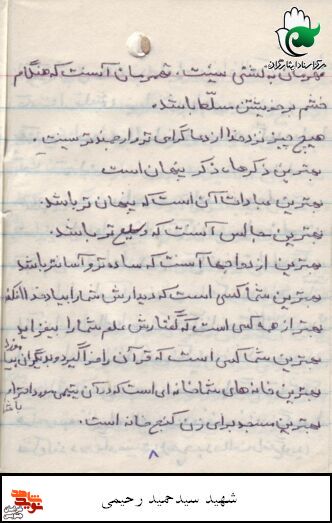 مرکز اسناد ایثارگران
قهرمان به کشتی نیست، قهرمان آنست که هنگام
خشم بر خویشتن مسلط باشد.
هیچ چیز نزد خدا از دعا گرامی تر و ارجمندتر نیست.
بهترین ذکرها، ذکر پنهان است
بهترین عبادات آن است که پنهان تر باشد.
بهترین مجالس آنست که وسیع تر باشد.
بهترین ازدواجها آنست که ساده تر و آسانتر باشد
بهترین شما کسی است که دیدارش شما را بیاد خدا
بهتر از همه کسی است که گفتارش علم شما را بیفزاید
بهترین شما کسی است که قرآن را فرا گیرد و به دیگران
بهترین خانه های شما خانه ای است که در آن یتیمی مورد احترام باشد
بهترین مسجد برای زن کنج خانه است.
۸
شهید سیدحمید رحیمی
شاهد
نوید